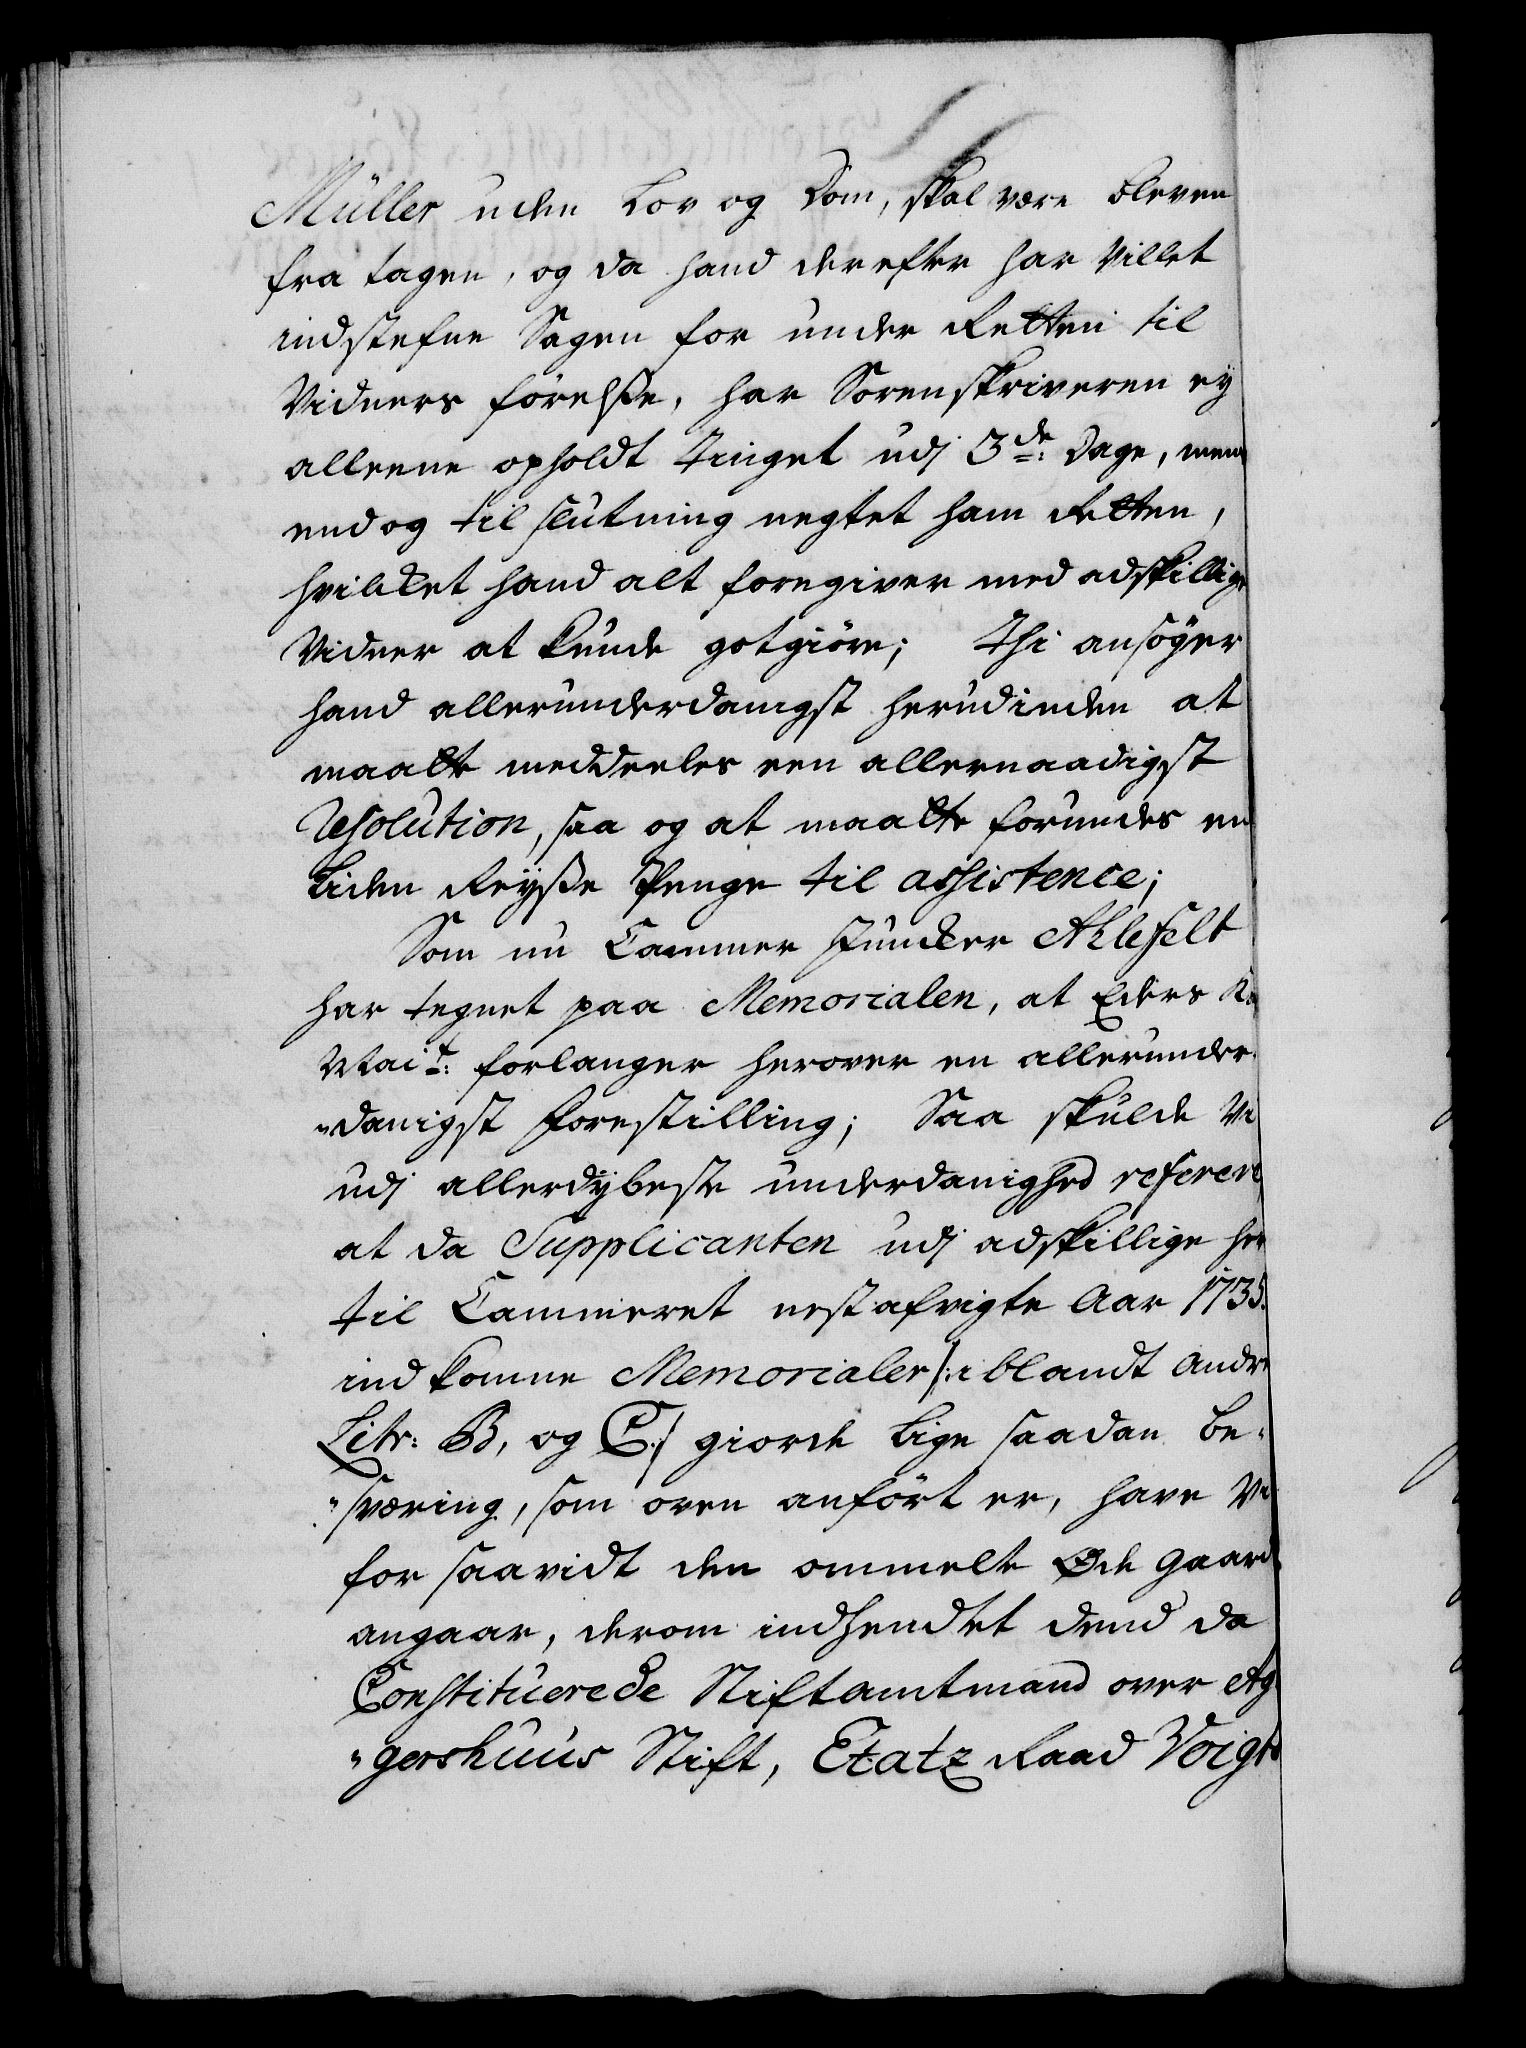 Müller uden Lov og Dom, skal være bleven
fra tagen, og da hand derefter har villet
indstefne Sagen for under Retten til
Vidners förelsße, har Sorenskriveren ey
alleene opholdt Tinget udj 3de: Dage, men
end og til slutning negtet ham Retten,
hvilcket hand alt foregiver med adskillige
Vidner at kunde gotgiöre; Thi ansöger
hand allerunderdanigst herudinden at
maatte meddeeles een allernaadigst
Resolution, saa og at maatte forundes en
liden Reysße Penge til assistence;
Som nu Cammer Juncker Ahlefelt
har tegnet paa Memorialen, at Eders Ko
Mait: forlanger herover en allerunder-
"danigst Forestilling; Saa skulde Vi
udj allerdybeste underdanighed referere,
at da Supplicanten udj adskillige her
til Cammeret nestafvigte Aar 1735.
ind komne Memorialer /: iblandt andre
Litr: B, og C :/ giorde lige saadan be-
"sværing, som oven anfört er, have Vi
for saavidt den ommelte Øde gaard
angaar, derom indhendtet dend da
Constituerede Stiftamtmand over Ag-
"gershuus Stift, Etatz Raad Voigts